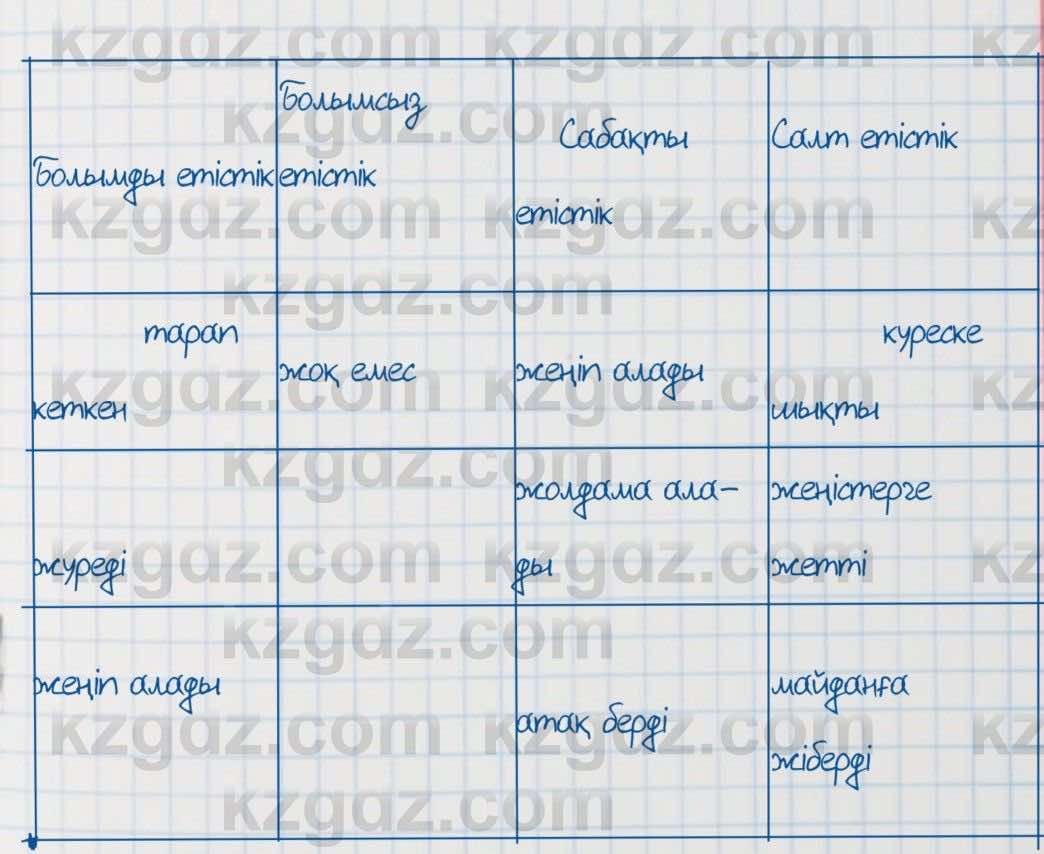 Болымды етістік
Болымсыз
етістік
Сабақты
етістік
Салт етістік
тарап
кеткен
жоқ емес
жеңіп алады
күреске
шықты
жүреді
жолдама ала-
ды
жеңістерге
жетті
жеңіп алады
атақ берді
майданға
жіберді
kzgdz.com